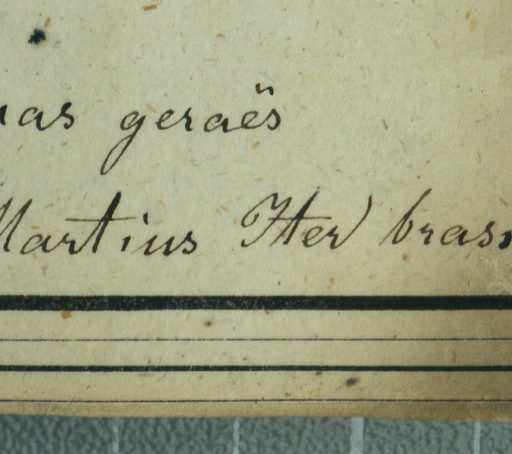 nas geraës
Martius Iter bras